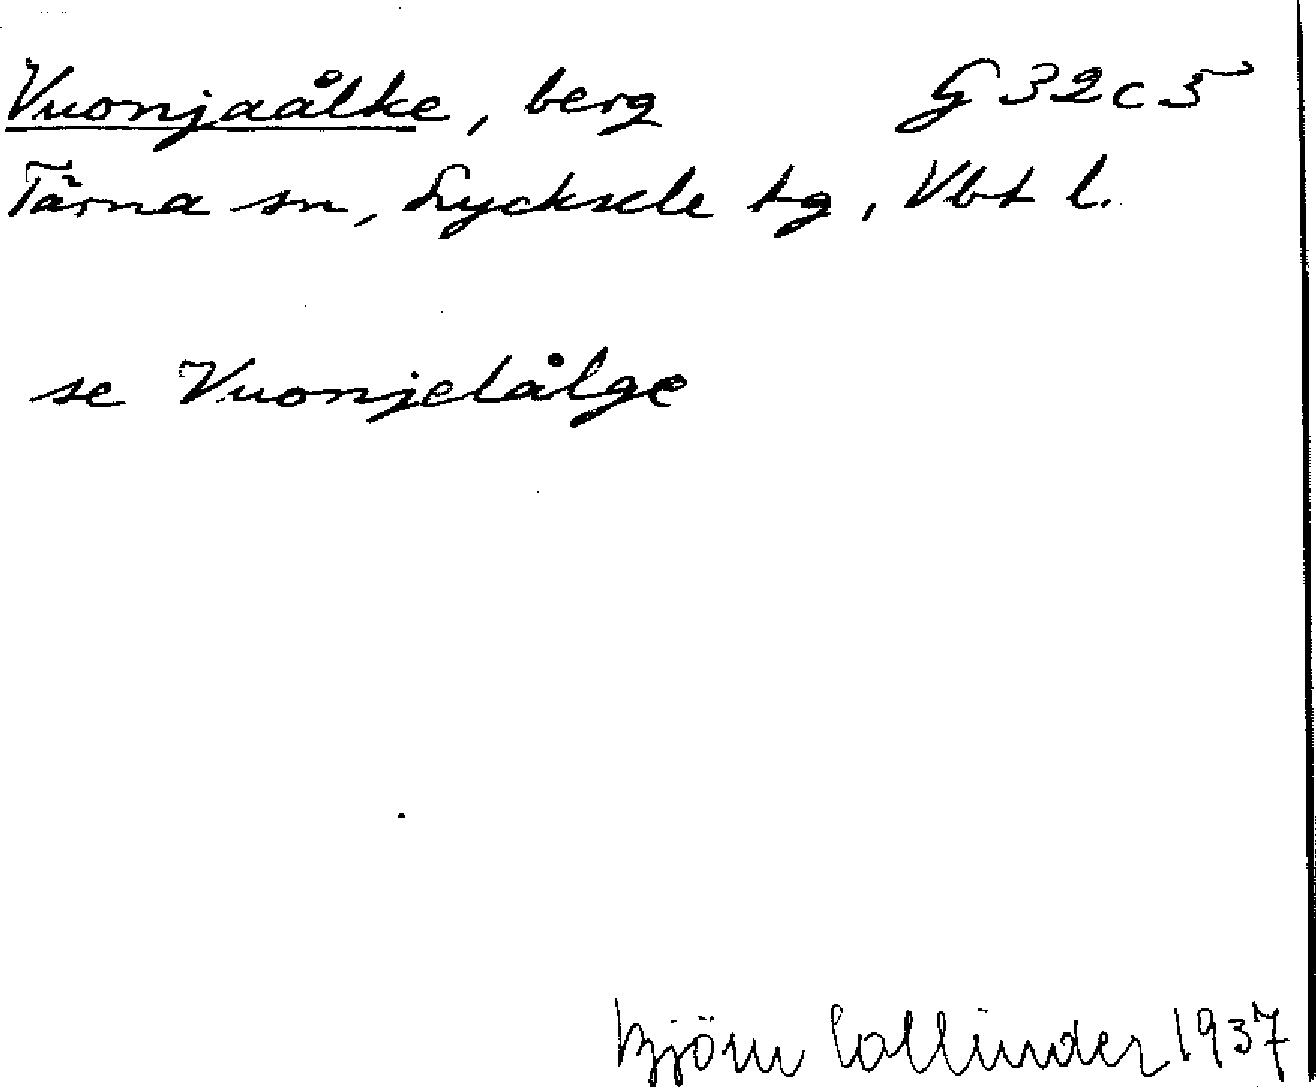 Vuonjaålke, berg G 32 c 5
Tärna sn, Lycksele tg, Vbt l.
se Vuonjelålge
Björn Collinder 1937